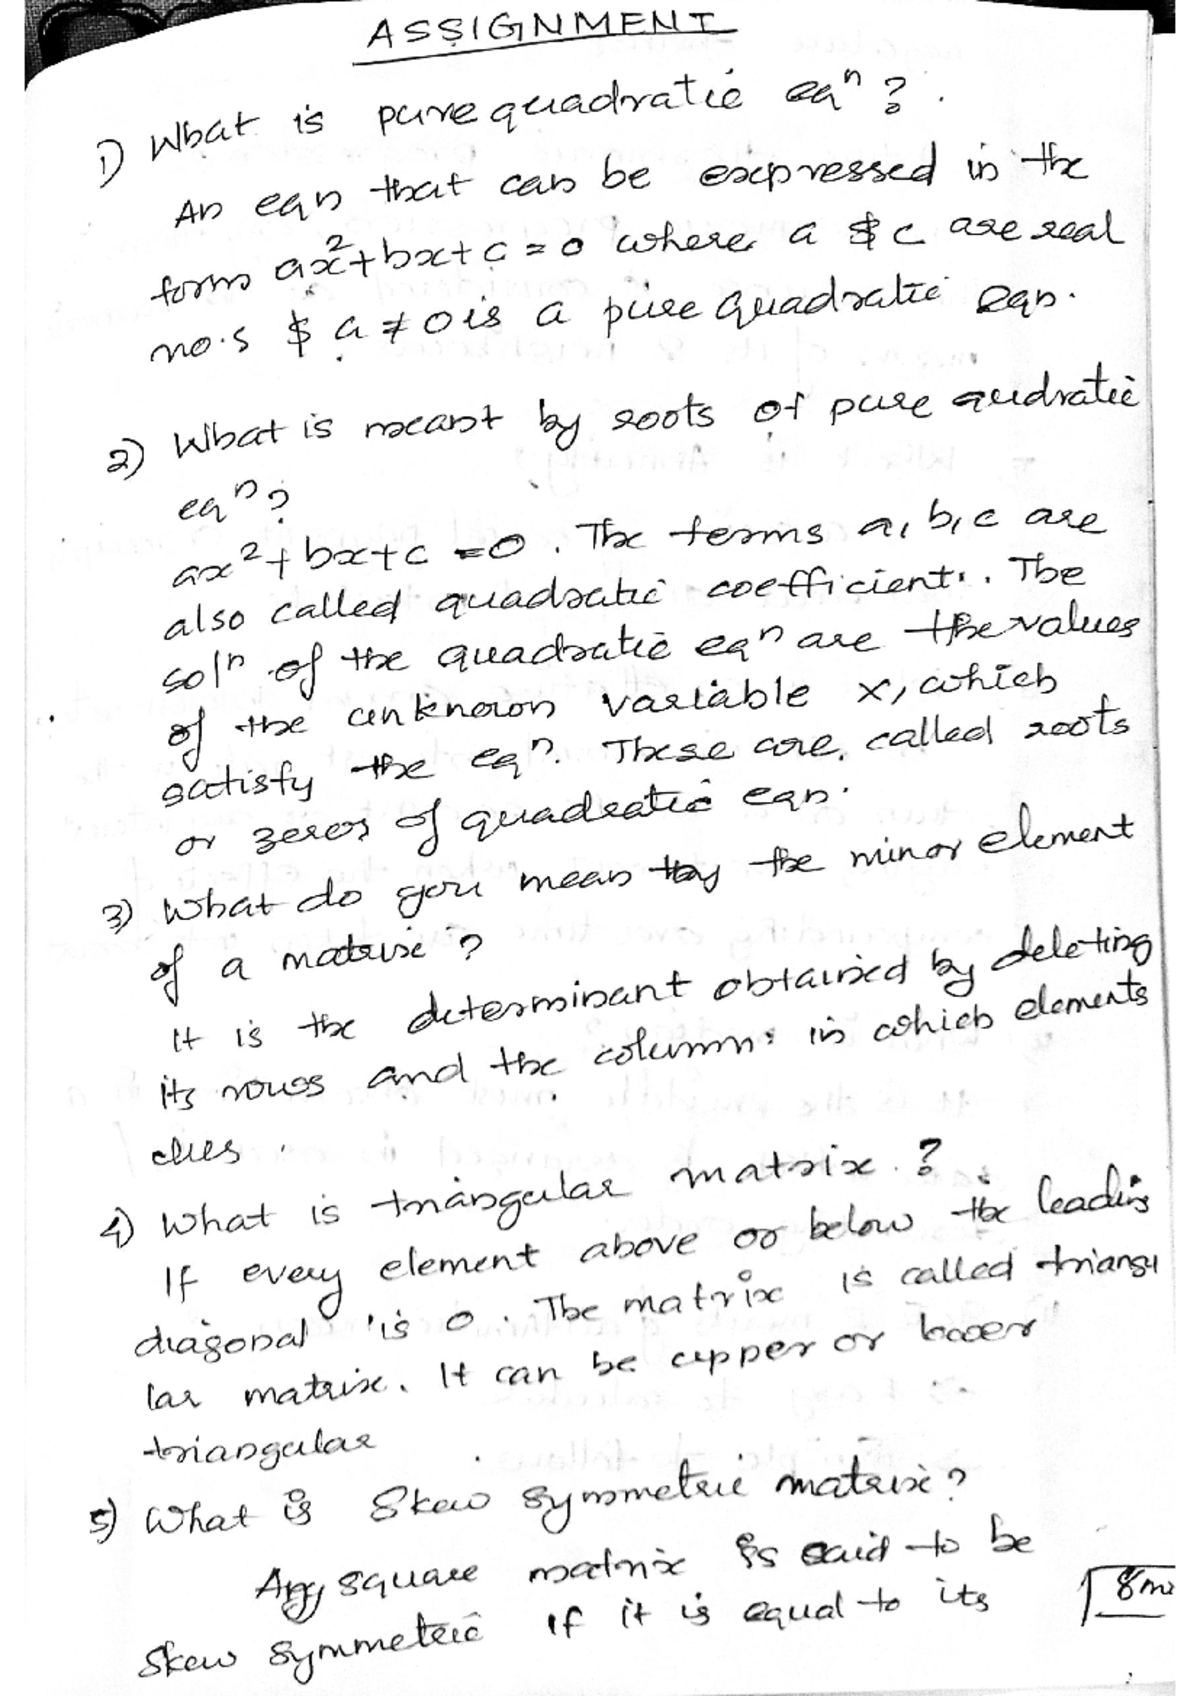 ASSIGNMENT
1) What is pure quadratic eqn ?
An eqn that can be expressed in the
form ax²+bx+c=0 where a & c are real
no.s & a ≠ 0 is a pure quadratic eqn.
2) What is meant by roots of pure qudratic
eqn ?
ax²+bx+c =0. The terms a, b, c are
also called quadratic coefficient. The
soln of the quadratic eqn are the values
of the unknown variable x, which
satisfy the eqn. These are called roots
or zeros of quadratic eqn.
3) What do you mean by the minor element
of a matrix ?
It is the determinant obtained by deleting
its rows and the columns in which elements
lies.
4) What is triangular matrix. ?
If every element above or below the leading
diagonal is 0. The matrix is called triangu
lar matrix. It can be upper or lower
triangular
5) What is Skew symmetric matrix ?
Any square matrix is said to be
skew symmetric if it is equal to its